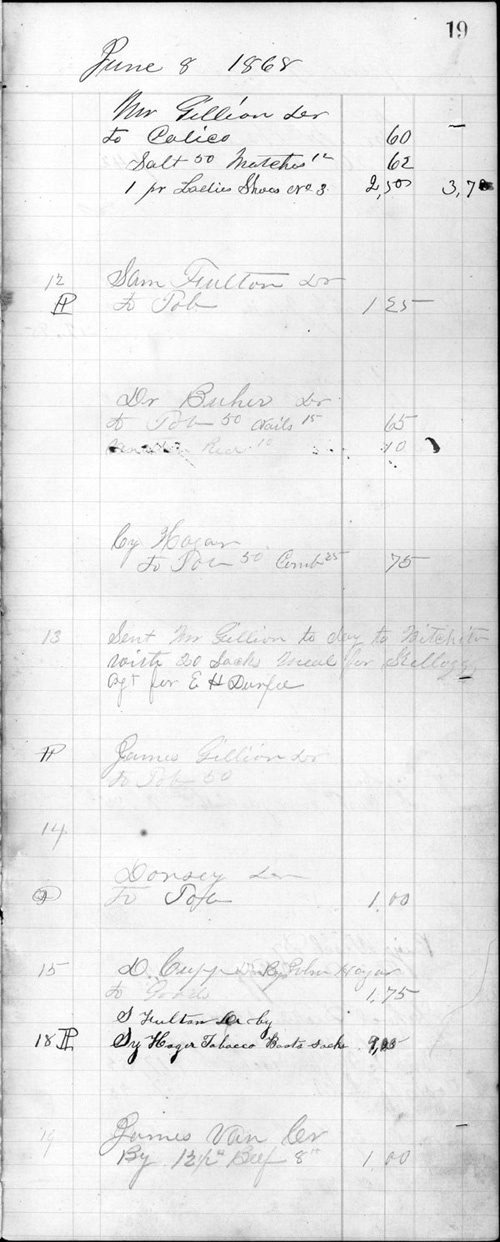 19
June 8 1868
Mr Gillion Dr
to Calico 60
Salt 50 Matches 12 62
1 pr Ladies Shoes No 3 2,50 3,7
12 Sam Fulton Dr
to Tob 1 25
Dr Buher Dr
to Tob 50 Nails 15 65
10 10
Cy Hogan
to Tob 50 Comb 25 75
13 Sent Mr Gillion to day to Witchita
with 20 Sacks Meal for Kellogg
Agt for E H Durfee
James Gillion Dr
to Tob 50
14
Dorsey Dr
To Tob 1.00
15 D. Cupp Dr By John Hogan
to Goods 1,75
S Fulton Dr by
18 Sy Hager Tobacco Boots Socks
19 James Van Cr
By 12½ Beef 8 1.00